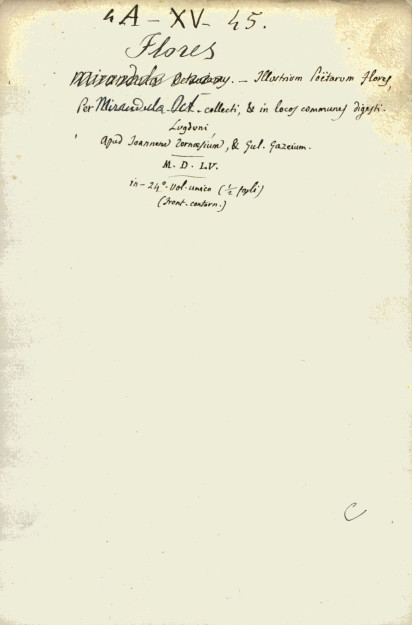 4A - XV - 45.
Flores
Mirandula Octavianus. - Illustrium Poëtarum Flores,
Per Mirandula Oct. collecti, & in locos communes digesti.
Lugduni,
Apud Joannem Tornæsium, & Gul. Gazeium.
M. D. LV.
in-24°. Vol. unico (½
(Front. contorn.)
C